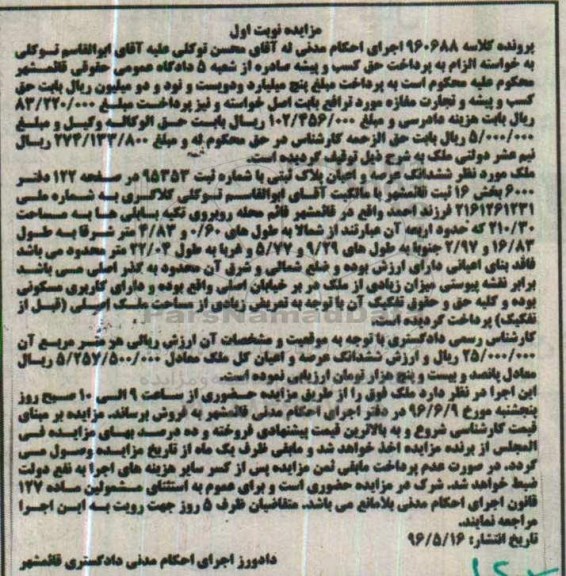 مزایده نوبت اول
پرونده کلاسه ۹۶۰۶۸۸ اجرای احکام مدنی له آقای محسن توکلی علیه آقای ابوالقاسم توکلی
به خواسته الزام به پرداخت حق کسب و پیشه صادره از شعبه ۵ دادگاه عمومی حقوقی قائمشهر
محکوم علیه محکوم است به پرداخت مبلغ پنج میلیارد ودویست و نود و دو میلیون ریال بابت حق
کسب و پیشه و تجارت مغازه مورد ترافع بابت اصل خواسته و نیز پرداخت مبلغ ۸۳/۲۲۰/۰۰۰
ریال بابت هزینه دادرسی و مبلغ ۱۰۲/۴۵۶/۰۰۰ ریال بابت حق الوکاله وکیل و مبلغ
۵/۰۰۰/۰۰۰ ریال بابت حق الزحمه کارشناس در حق محکوم له و مبلغ ۲۷۴/۱۳۳/۸۰۰ ریال
نیم عشر دولتی ملک به شرح ذیل توقیف گردیده است.
ملک مورد نظر ششدانگ عرصه و اعیان پلاک ثبتی با شماره ثبت ۹۵۳۵۳ در صفحه ۱۲۷ دفتر
۶۰۰۰ بخش ۱۶ ثبت قائمشهر با مالکیت آقای ابوالقاسم توکلی کلاگری به شماره ملی
۲۱۶۱۲۶۱۲۳۱ فرزند احمد واقع در قائمشهر قائم محله روبروی تکیه بابلی ها به مساحت
۲۱۰/۳۰ که حدود اربعه آن عبارتند از شمالا به طول های ۰/۶۰ و ۴/۸۳ متر شرقا به طول
۱۶/۸۳ و ۲/۹۷ جنوبا به طول های ۹/۲۹ و ۵/۷۷ و غربا به طول ۲۲/۰۴ متر محدود می باشد
فاقد بنای اعیانی دارای ارزش بوده و ضلع شمالی و شرق آن محدود به گذر اصلی می باشد
برابر نقشه پیوستی میزان زیادی از ملک در بر خیابان اصلی واقع بوده و دارای کاربری مسکونی
بوده و کلیه حق و حقوق تفکیک آن با توجه به تعریض زیادی از مساحت ملک اصلی (قبل از
تفکیک) پرداخت گردیده است.
کارشناس رسمی دادگستری با توجه به موقعیت و مشخصات آن ارزش ریالی هر متر مربع آن
۲۵/۰۰۰/۰۰۰ ریال و ارزش ششدانگ عرصه و اعیان کل ملک معادل ۵/۲۵۷/۵۰۰/۰۰۰ ریال
معادل پانصد و بیست و پنج هزار تومان ارزیابی نموده است.
این اجرا در نظر دارد ملک فوق را از طریق مزایده حضوری از ساعت ۹ الی ۱۰ صبح روز
پنجشنبه مورخ ۹۶/۶/۹ در دفتر اجرای احکام مدنی قائمشهر به فروش برساند. مزایده بر مبنای
قیمت کارشناسی شروع و به بالاترین قیمت پیشنهادی فروخته و ده درصد بهای مزایده فی
المجلس از برنده مزایده اخذ خواهد شد و مابقی ظرف یک ماه از تاریخ مزایده وصول می
گردد. در صورت عدم پرداخت مابقی ثمن مزایده پس از کسر سایر هزینه های اجرا به نفع دولت
ضبط خواهد شد. شرک در مزایده حضوری است و برای عموم به استثنای مشمولین ماده ۱۲۷
قانون اجرای احکام مدنی بلامانع می باشد. متقاضیان ظرف ۵ روز جهت رویت به این اجرا
مراجعه نمایند.
تاریخ انتشار: ۹۶/۵/۱۶
دادورز اجرای احکام مدنی دادگستری قائمشهر
ParsNamadData